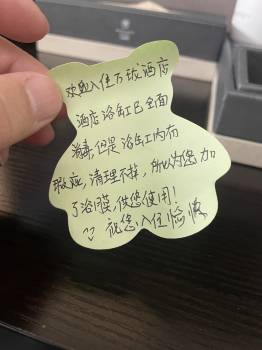 欢迎入住万球酒店
酒店浴缸已全面
消毒,但是浴缸内有
瑕疵,清理不掉,所以为您加
了浴膜,供您使用!
祝您入住愉快